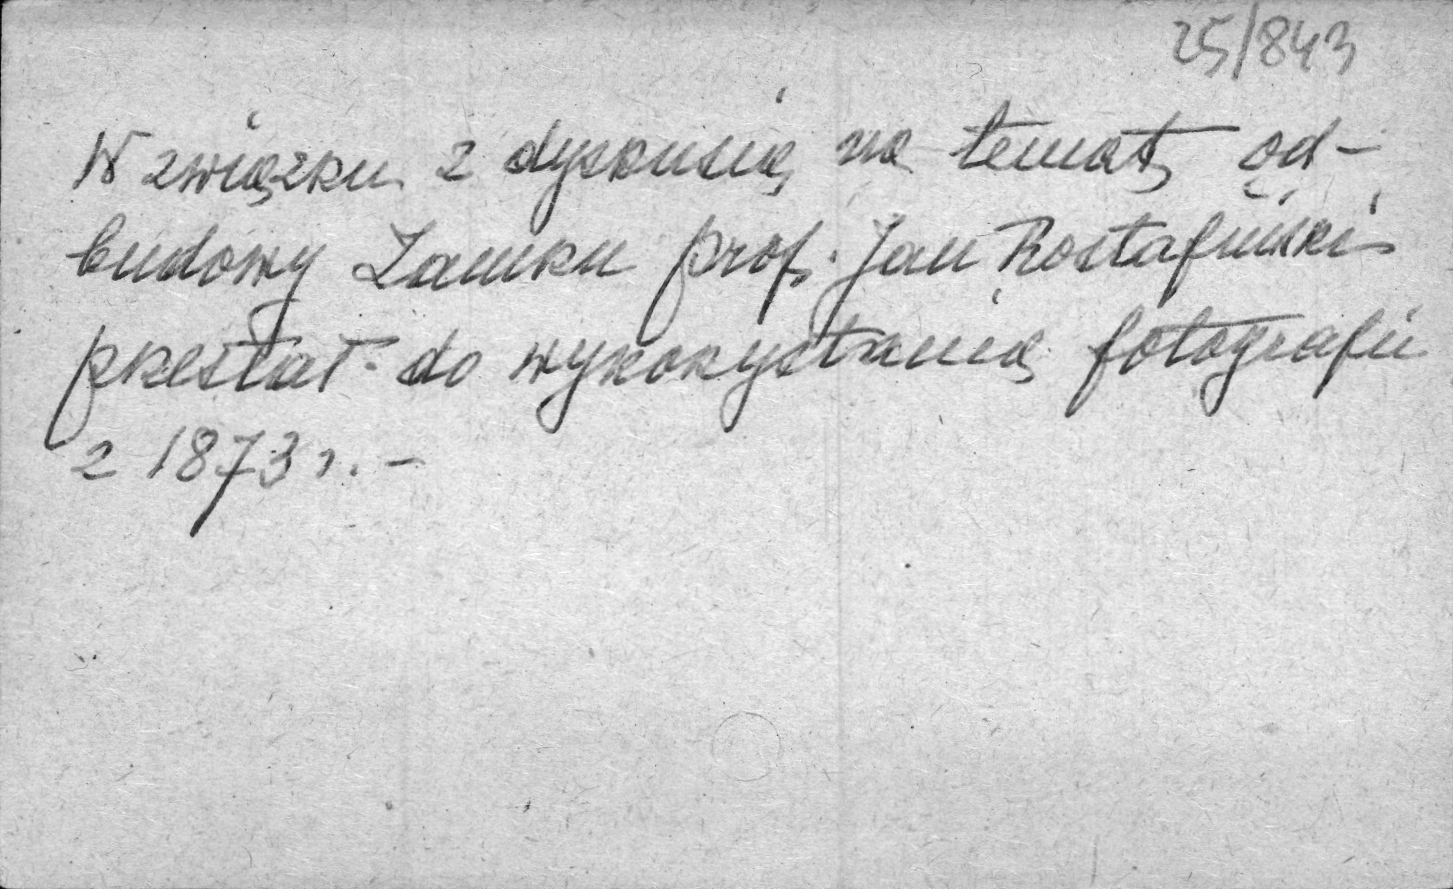 25/843
W związku z dyskusią na temat od-
budowy Zamku prof. Jan Rostafiński
przesłał do wykorzystania fotografii
z 1873 r. –